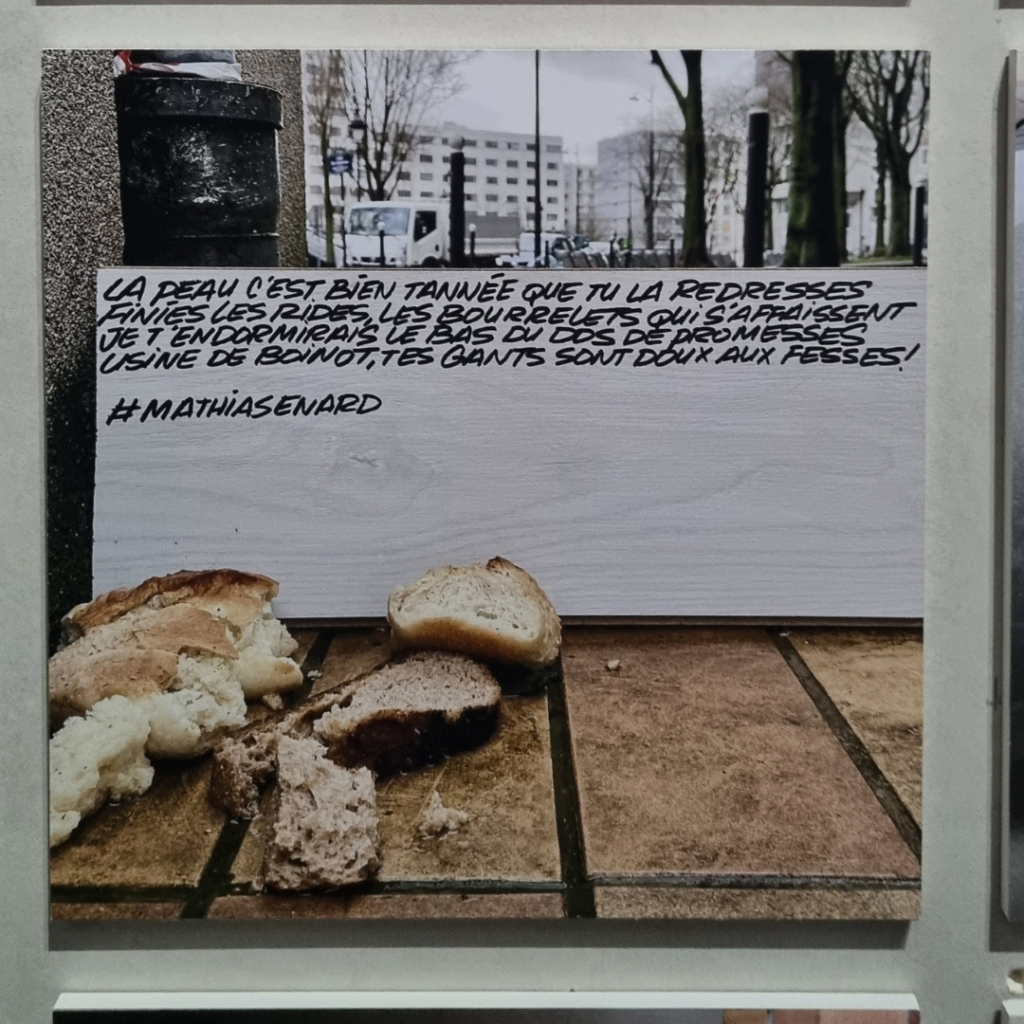 LA PEAU C'EST BIEN TANNÉE QUE TU LA REDRESSES
FINIES LES RIDES, LES BOURRELETS QUI S'AFFAISSENT
JE T'ENDORMIRAIS LE BAS DU DOS DE PROMESSES
USINE DE BOINOT, TES GANTS SONT DOUX AUX FESSES!
#MATHIASENARD